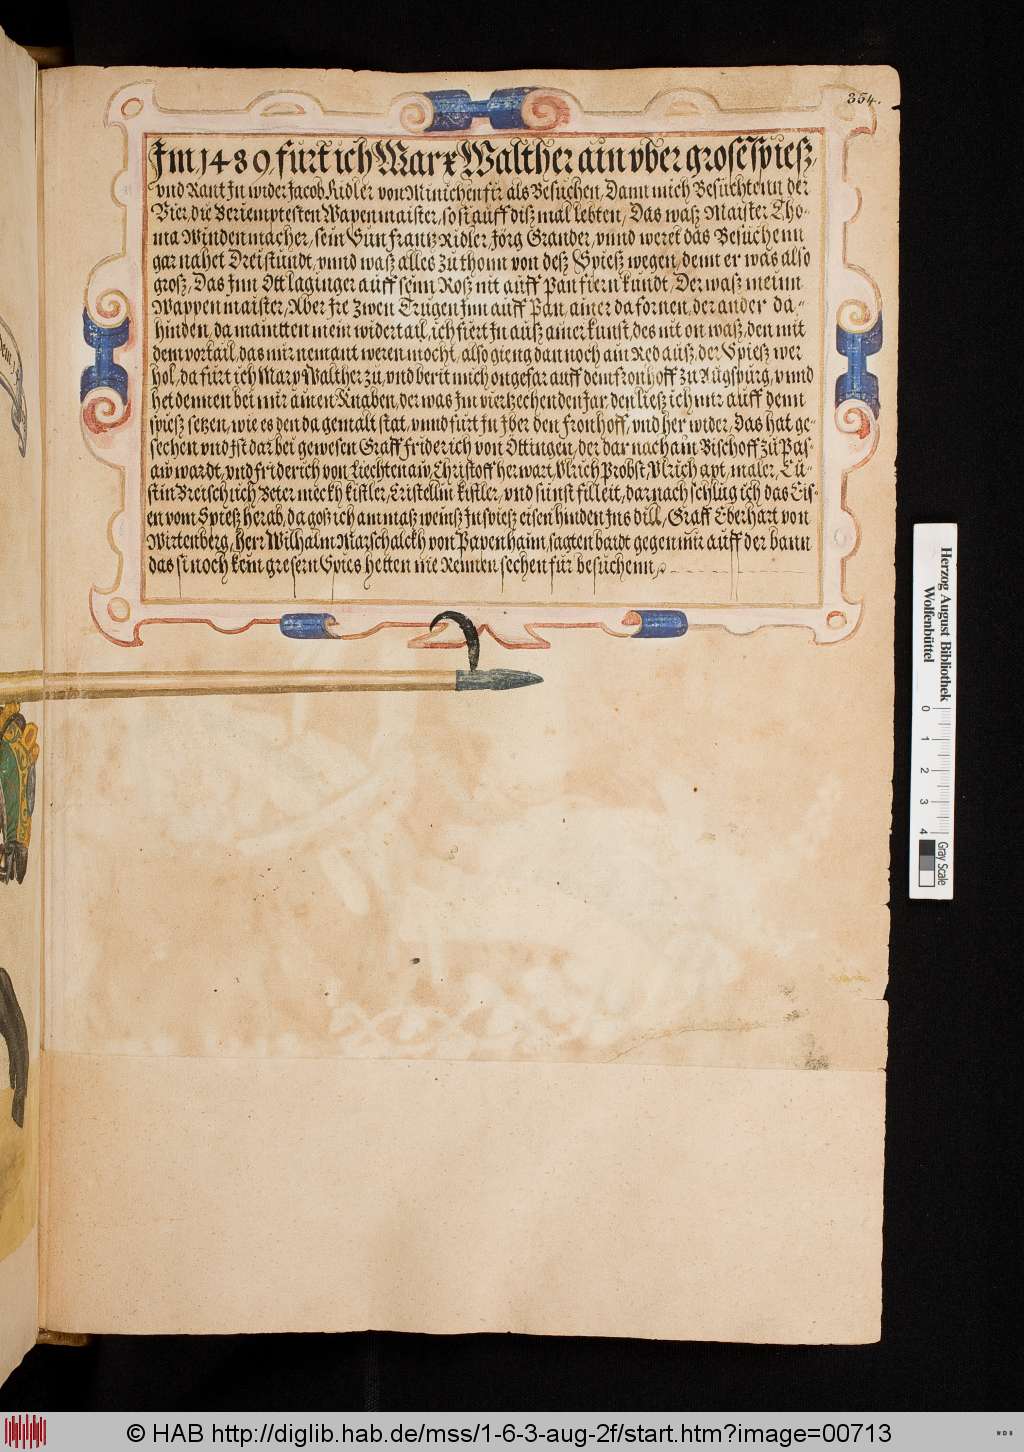 354.
Im 1480, fürt ich Marx Walther ain vber grose spiesz,
vnd Rant In wider Jacob Ridler von Minichen fir als Besuchen, Dann mich Besuchtenn der
Vier, die Beriemptesten Wapenmaister, so si auff disz mal lebten, Das wasz Maister Tho-
ma Windenmacher, sein Sun Frantz Ridler, Jörg Grander, vnnd weret das Besuchenn
gar nahet Dreistundt, vnnd wasz alles zu thonn von desz Spiesz wegen, denn er was also
grosz, Das Inn Ott laginger auff seim Rosz nit auff Pan fiern kundt, Der wasz meinn
Wappenmaister, Aber Ire zwen Trugen Inn auff Pan, ainer da fornen, der ander da-
hinden, da maintten mein widertail, ich fiert In ausz ainer kunst, des nit on wasz, den mit
dem vortail, das mir nemant weren mocht, also gieng dannoch ain Red ausz, der Spiesz wer
hol, da fürt ich Marx Walther zu, vnd berit mich ongefar auff dem fronhoff zu Augspurg, vnnd
het dennen bei mir ainen Knaben, der was Im viertzechenden Jar den liesz ich mir auff denn
spiesz setzen, wie es den da gemalt stat, vnnd fürt In Iber den fronhoff, vnd her wider, Das hat ge-
sechen vnd Ist dar bei gewesen Graff Friderich von Ottingen, der dar nach am Bischoff zu Pas-
aw wardt, vnd friderich von Liechtenaw, Christoff herwart, Vlrich Probst, Vlrich apt, maler, Cü-
stin Breischuch Peter meckh kistler, Cristellin kistler, vnd sunst fil leit, darnach schlug ich das Eis-
en vom Spiesz herab, da gosz ich am masz weinsz In spiesz eisen hinden Ins dill, Graff Eberhart von
Wirtenberg, Herr Wilhalm Marschalckh von Papenhaim, sagten baidt gegen mir auff der bann
das si noch kein gresern Spies hetten nie Rennen sechen fur besuchenn,
Herzog August Bibliothek
Wolfenbüttel
0 1 2 3 4
Gray Scale
© HAB http://diglib.hab.de/mss/1-6-3-aug-2f/start.htm?image=00713